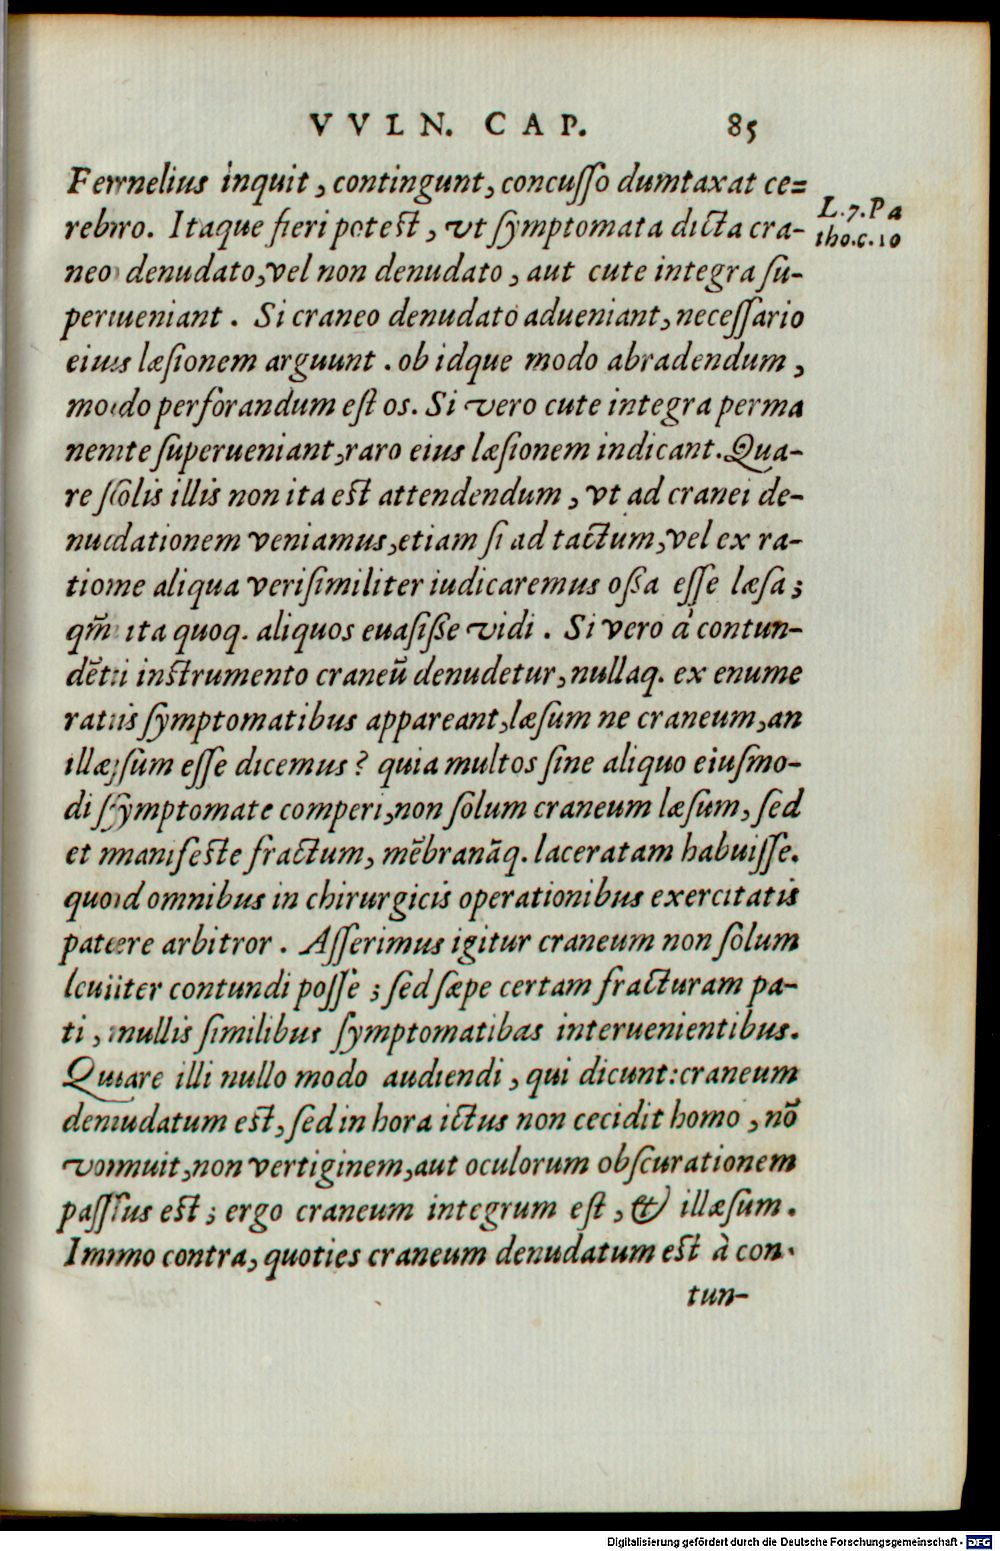 VVLN. CAP. 85
Fernelius inquit, contingunt, concusso dumtaxat ce=
rebro. Itaque fieri potest, vt symptomata dicta cra-
L.7.Pa
tho.c.10
neo denudato, vel non denudato, aut cute integra su-
perueniant. Si craneo denudato adueniant, necessario
eius læsionem arguunt. ob idque modo abradendum,
modo perforandum est os. Si vero cute integra perma
nente superueniant, raro eius læsionem indicant. Qua-
re solis illis non ita est attendendum, vt ad cranei de-
nudationem veniamus, etiam si ad tactum, vel ex ra-
tione aliqua verisimiliter iudicaremus ossa esse læsa;
qm̃ ita quoq. aliquos euasisse vidi. Si vero à contun-
dẽti instrumento craneũ denudetur, nullaq. ex enume
ratis symptomatibus appareant, læsum ne craneum, an
illæsum esse dicemus? quia multos sine aliquo eiusmo-
di symptomate comperi, non solum craneum læsum, sed
et manifeste fractum, mẽbranãq. laceratam habuisse.
quod omnibus in chirurgicis operationibus exercitatis
patere arbitror. Asserimus igitur craneum non solum
leuiter contundi posse; sed sæpe certam fracturam pa-
ti, nullis similibus symptomatibas interuenientibus.
Quare illi nullo modo audiendi, qui dicunt: craneum
denudatum est, sed in hora ictus non cecidit homo, nõ
vomuit, non vertiginem, aut oculorum obscurationem
passus est; ergo craneum integrum est, & illæsum.
Immo contra, quoties craneum denudatum est à con-
tun-
Digitalisierung gefördert durch die Deutsche Forschungsgemeinschaft - DFG